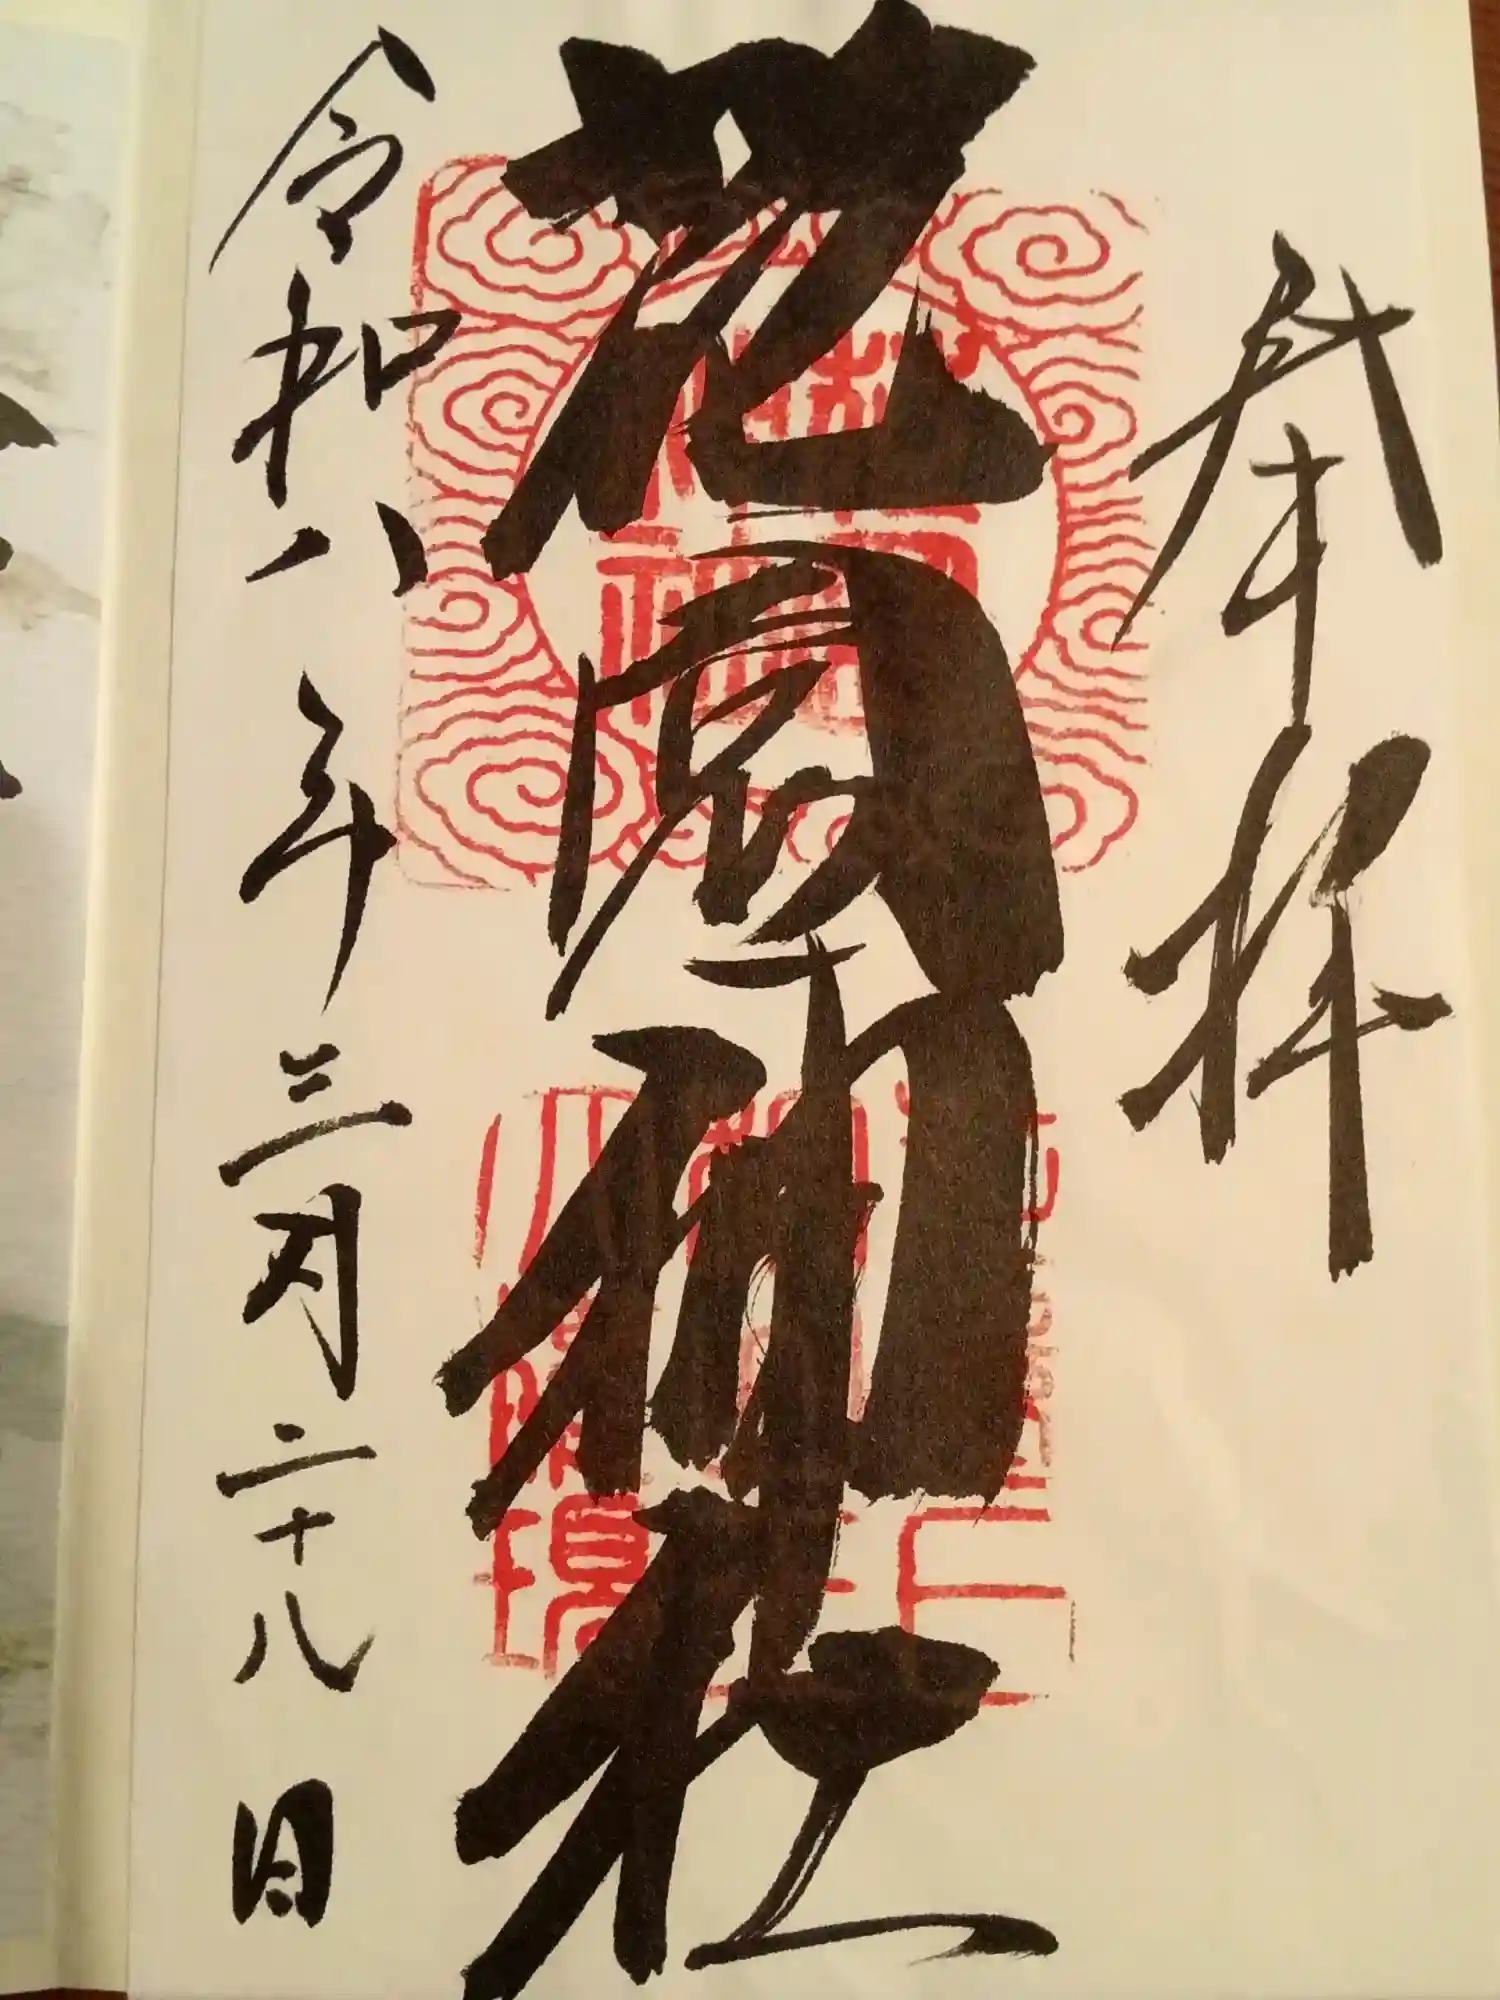 奉拝
花園神社
令和八年三月二十八日